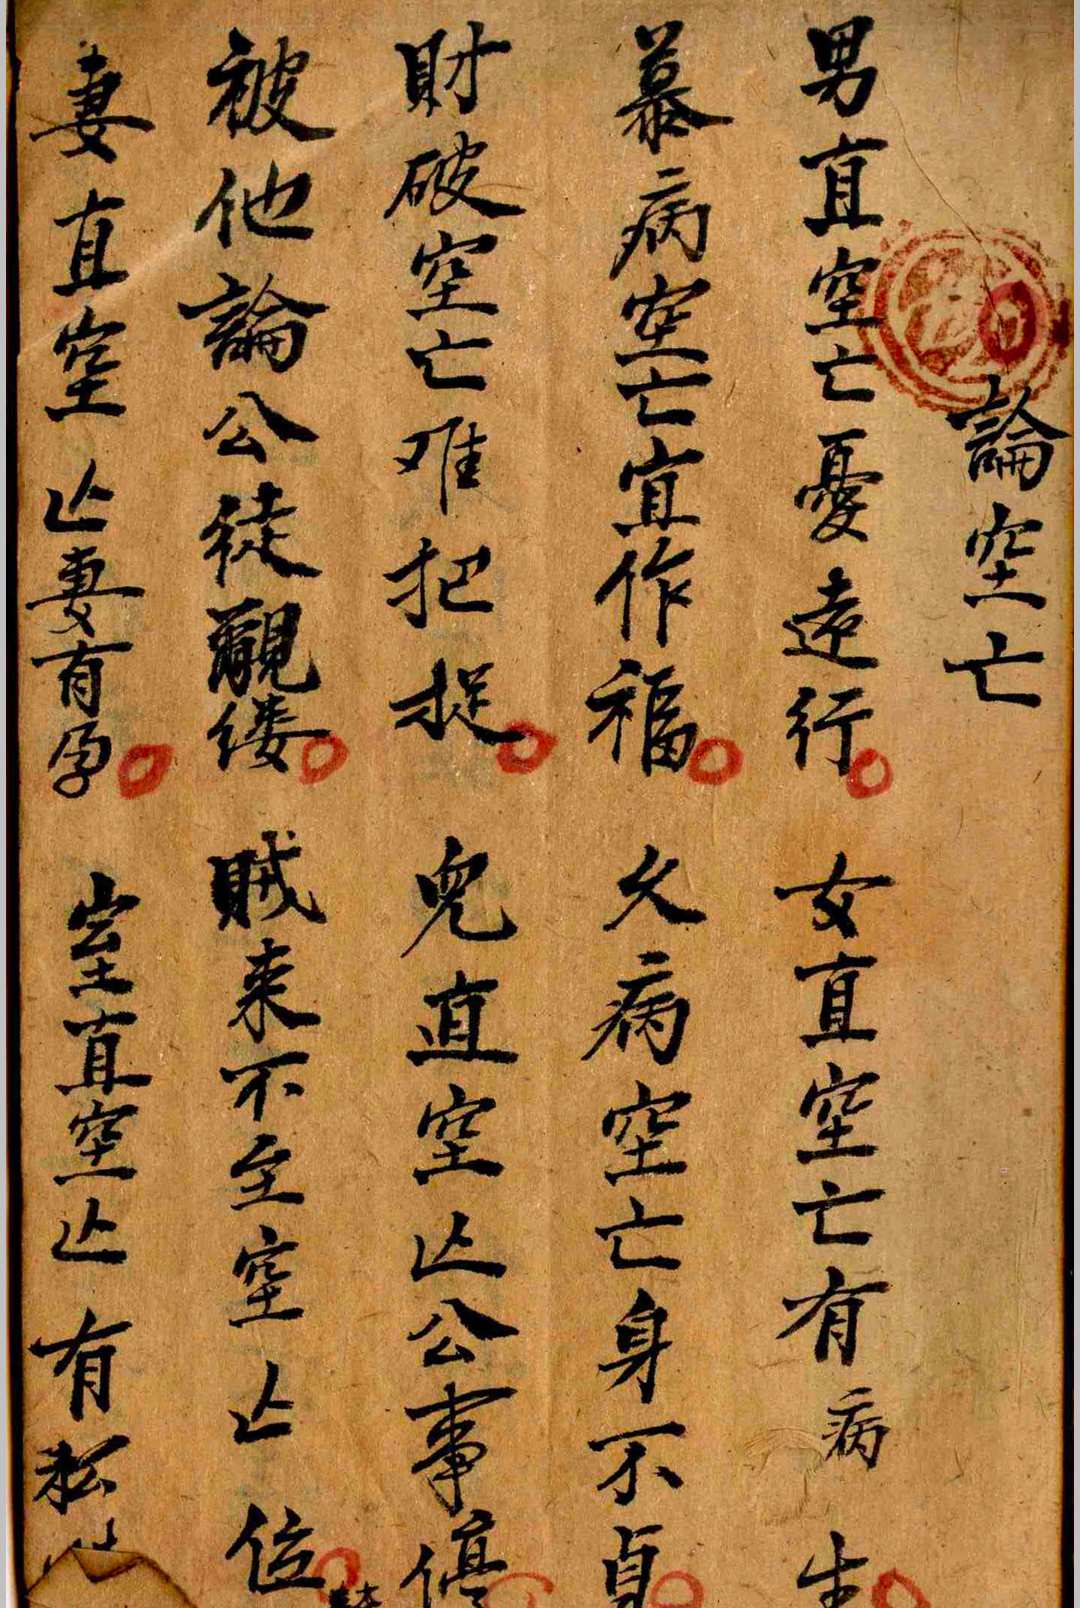 論空亡
男直空亡憂遠行 女直空亡有病 生
暴病空亡宜作福 久病空亡身不貞
財破空亡难把捉 鬼直空亡公事停
被他論公徒覼缕 賊来不至空亡 位
妻直空亡妻有孕 直空亡 有